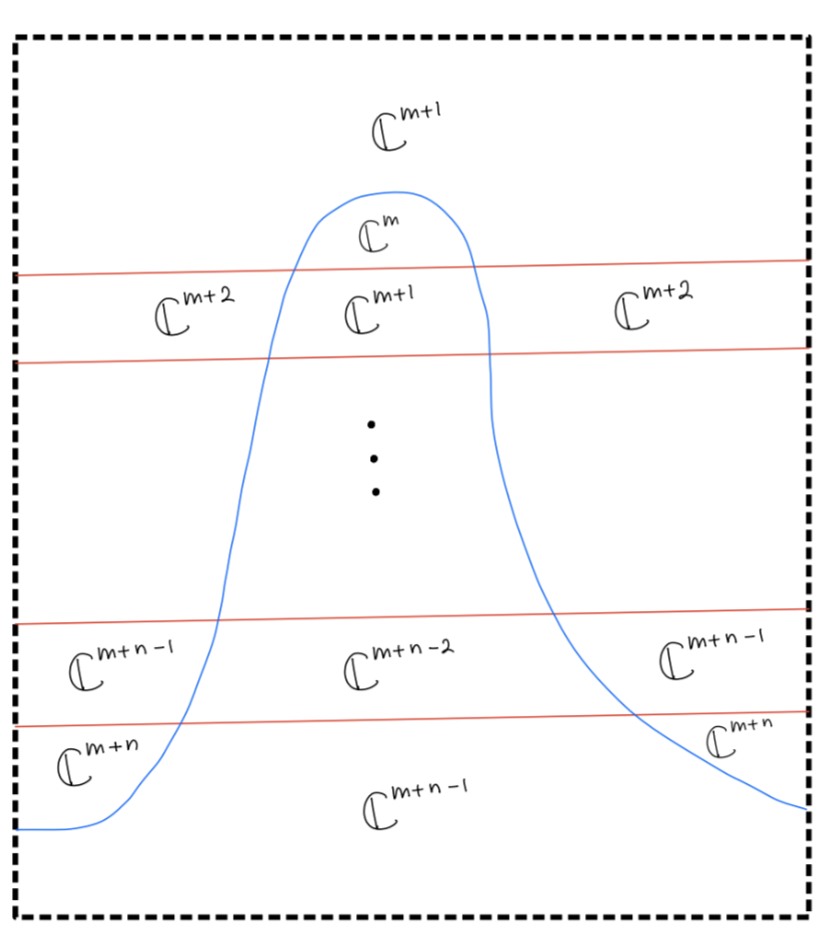 ℂ^{m+1}
ℂ^m
ℂ^{m+2} ℂ^{m+1} ℂ^{m+2}
ℂ^{m+n-1} ℂ^{m+n-2} ℂ^{m+n-1}
ℂ^{m+n} ℂ^{m+n}
ℂ^{m+n-1}